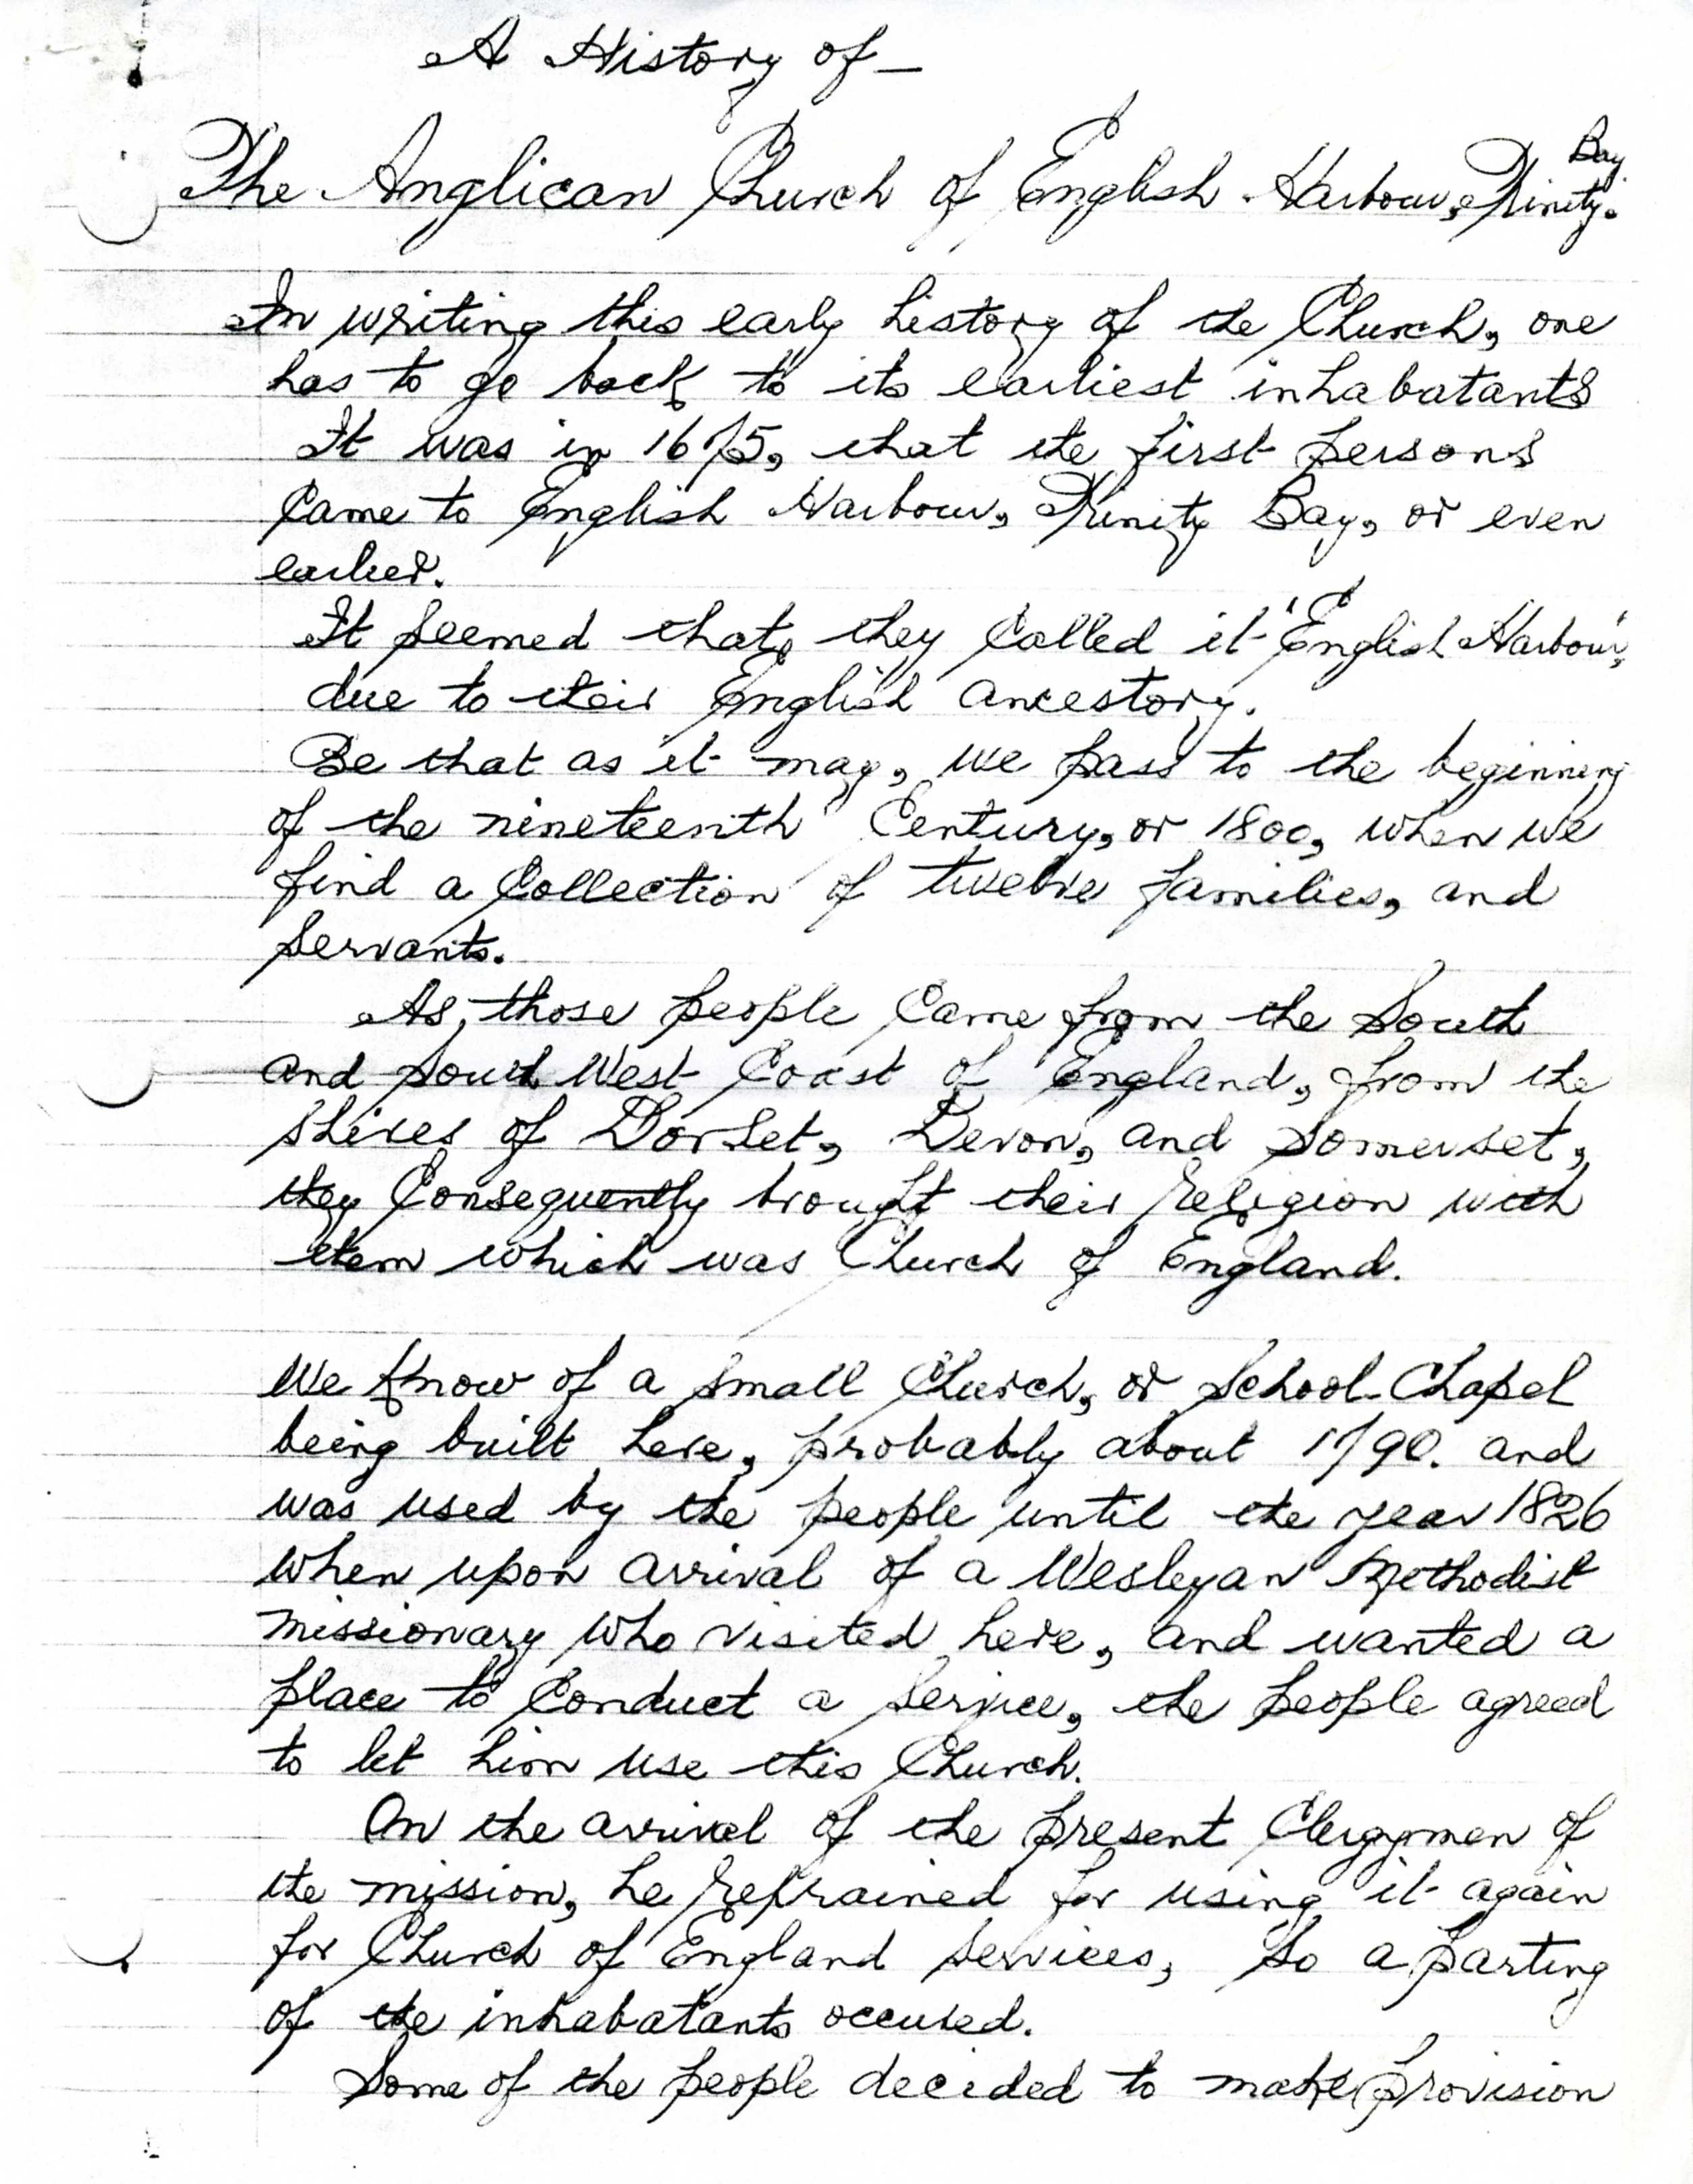 A History of —
The Anglican Church of English Harbour, Trinity. Bay
In writing this early history of the Church, one
has to go back to its earliest inhabatants
It was in 1675, that the first persons
Came to English Harbour, Trinity Bay, or even
earlier.
It seemed that, they Called it "English Harbour",
due to their English ancestory.
Be that as it may, we pass to the beginning
of the nineteenth Century, or 1800, when we
find a Collection of twelve families, and
Servants.
As, those people Came from the South
and South West Coast of England, from the
Shires of Dorset, Devon, and Somerset,
they Consequently brought their religion with
them which was Church of England.
We know of a small Church, or School-Chapel
being built here, probably about 1790. and
was used by the people until the year 1826
when upon arrival of a Wesleyan Methodist
missionary who visited here, and wanted a
place to Conduct a Service, the people agreed
to let him use this Church.
On the arrival of the present Clergymen of
the mission, he refrained for using it again
for Church of England Services, So a parting
of the inhabatants occured.
Some of the people decided to make provision